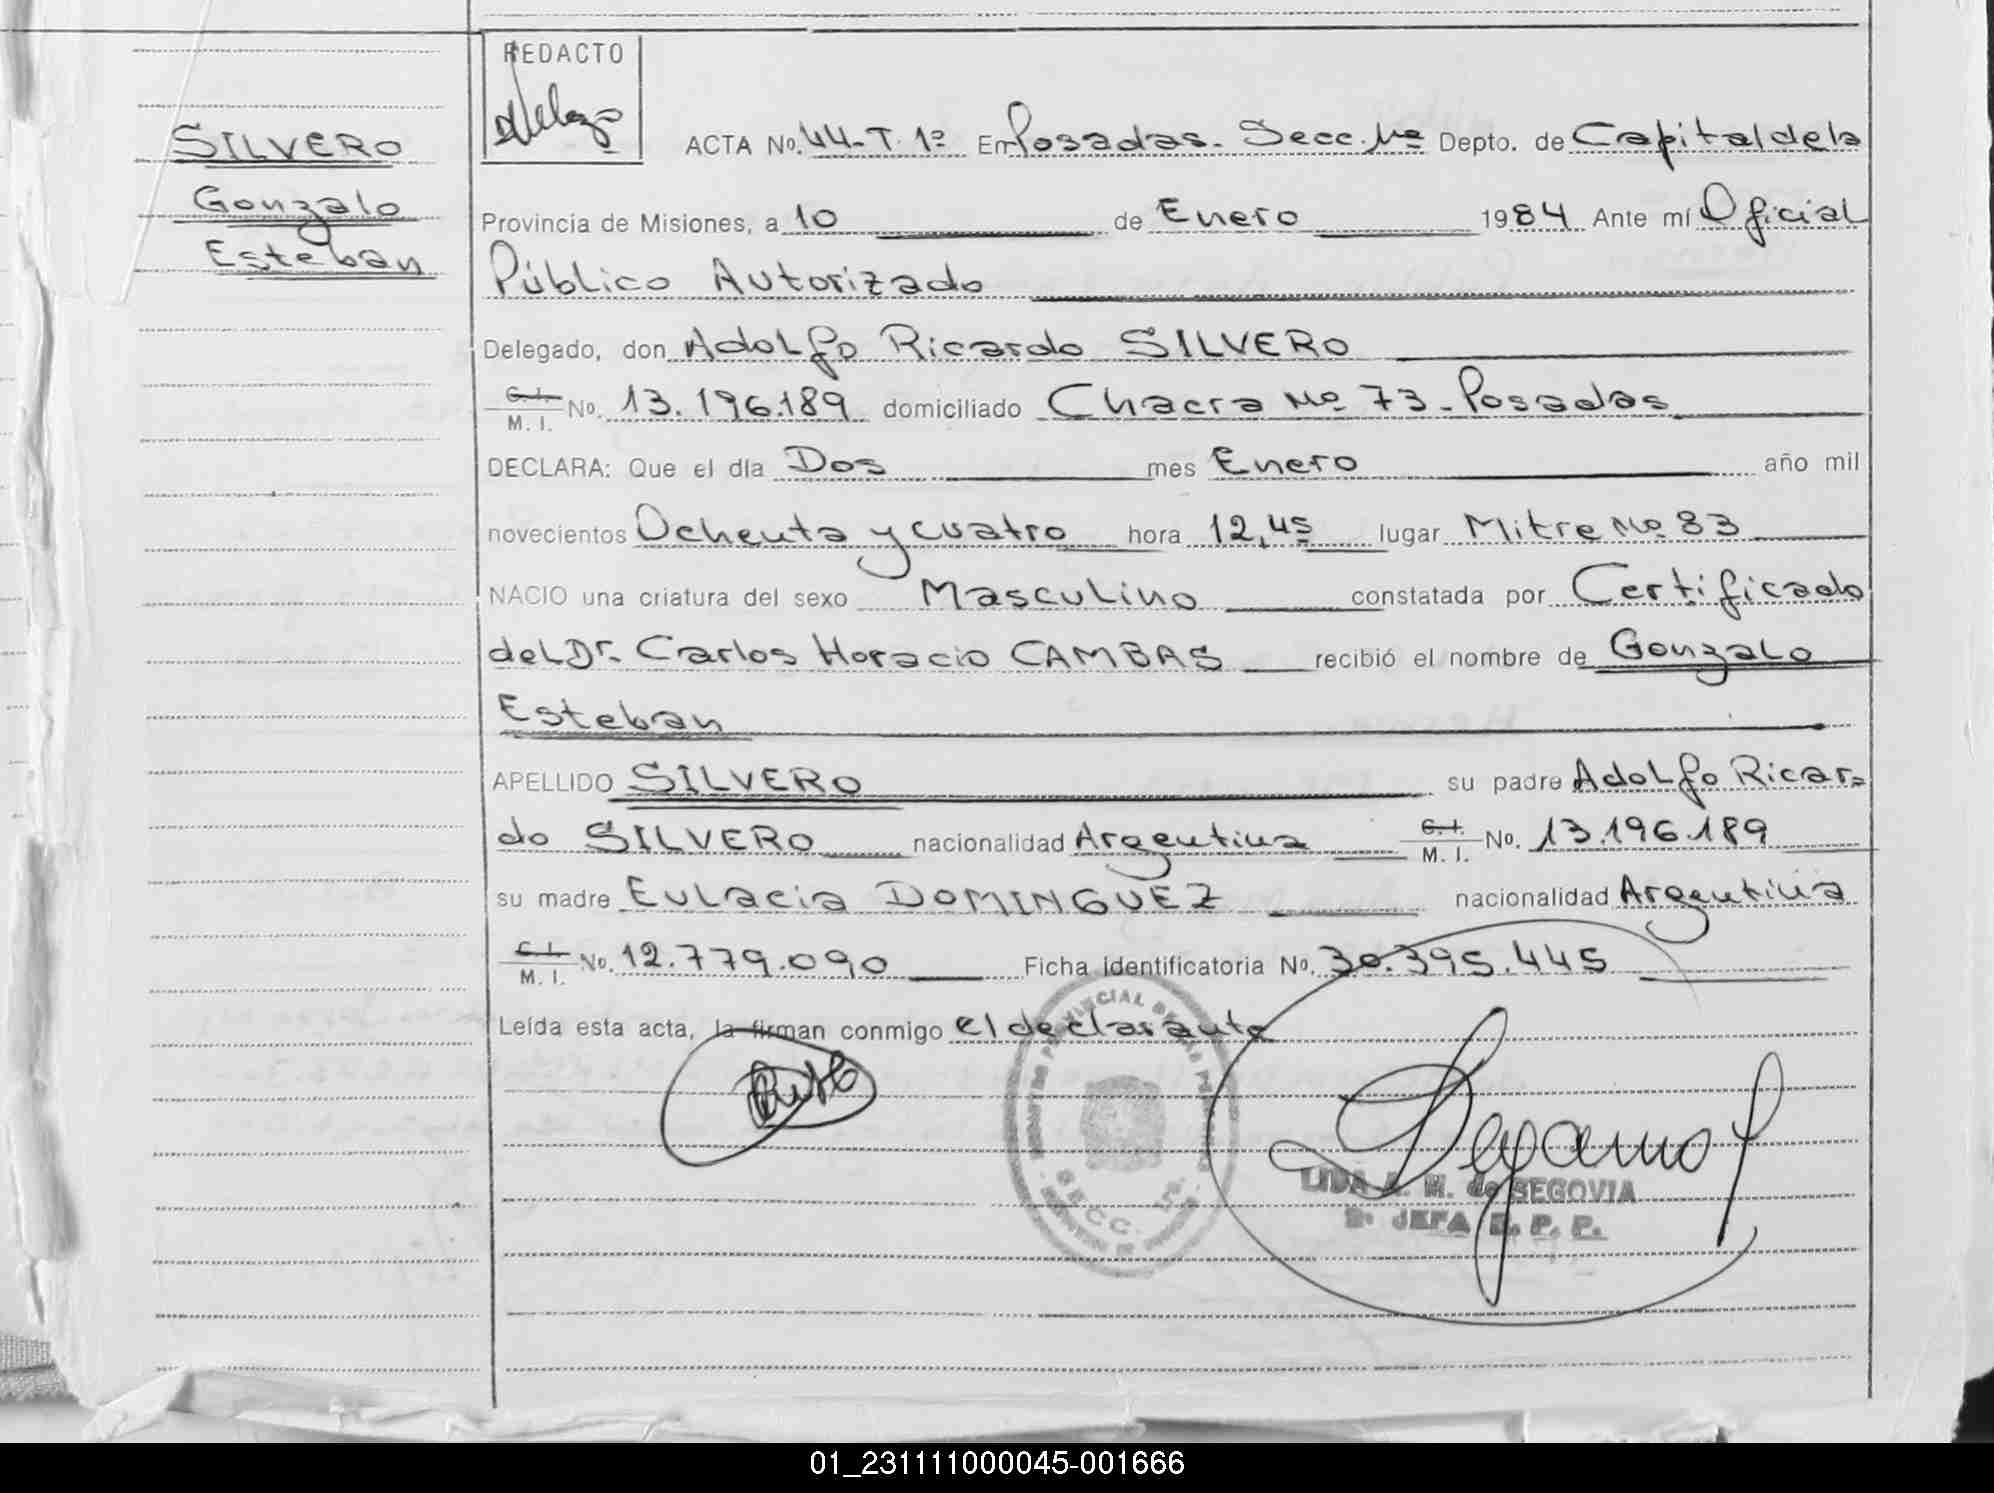 SILVERO
Gonzalo
Esteban
REDACTO
ACTA No. 44-T. 1º En Posadas. Secc. Nº Depto. de Capital de la
Provincia de Misiones, a 10 de Enero 1984 Ante mí Oficial
Público Autorizado
Delegado, don Adolfo Ricardo SILVERO
C. I. / M. I. No. 13.196.189 domiciliado Chacra Nº 73 - Posadas
DECLARA: Que el día Dos mes Enero año mil
novecientos Ochenta y cuatro hora 12,45 lugar Mitre Nº 83
NACIO una criatura del sexo Masculino constatada por Certificado
del Dr. Carlos Horacio CAMBAS recibió el nombre de Gonzalo
Esteban
APELLIDO SILVERO su padre Adolfo Ricar=
do SILVERO nacionalidad Argentina C. I. / M. I. No. 13.196.189
su madre Eulacia DOMINGUEZ nacionalidad Argentina
C. I. / M. I. No. 12.779.090 Ficha identificatoria No. 30.395.445
Leída esta acta, la firman conmigo el declarante
SECC.
M. de SEGOVIA
JEFA D. P. P.
01_231111000045-001666